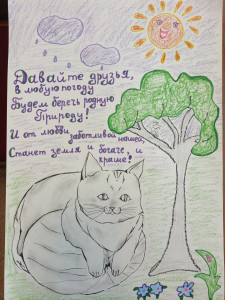 Давайте друзья,
в любую погоду
Будем беречь родную
Природу!
И от любви заботливой нашей,
Станет земля и богаче, и
краше!